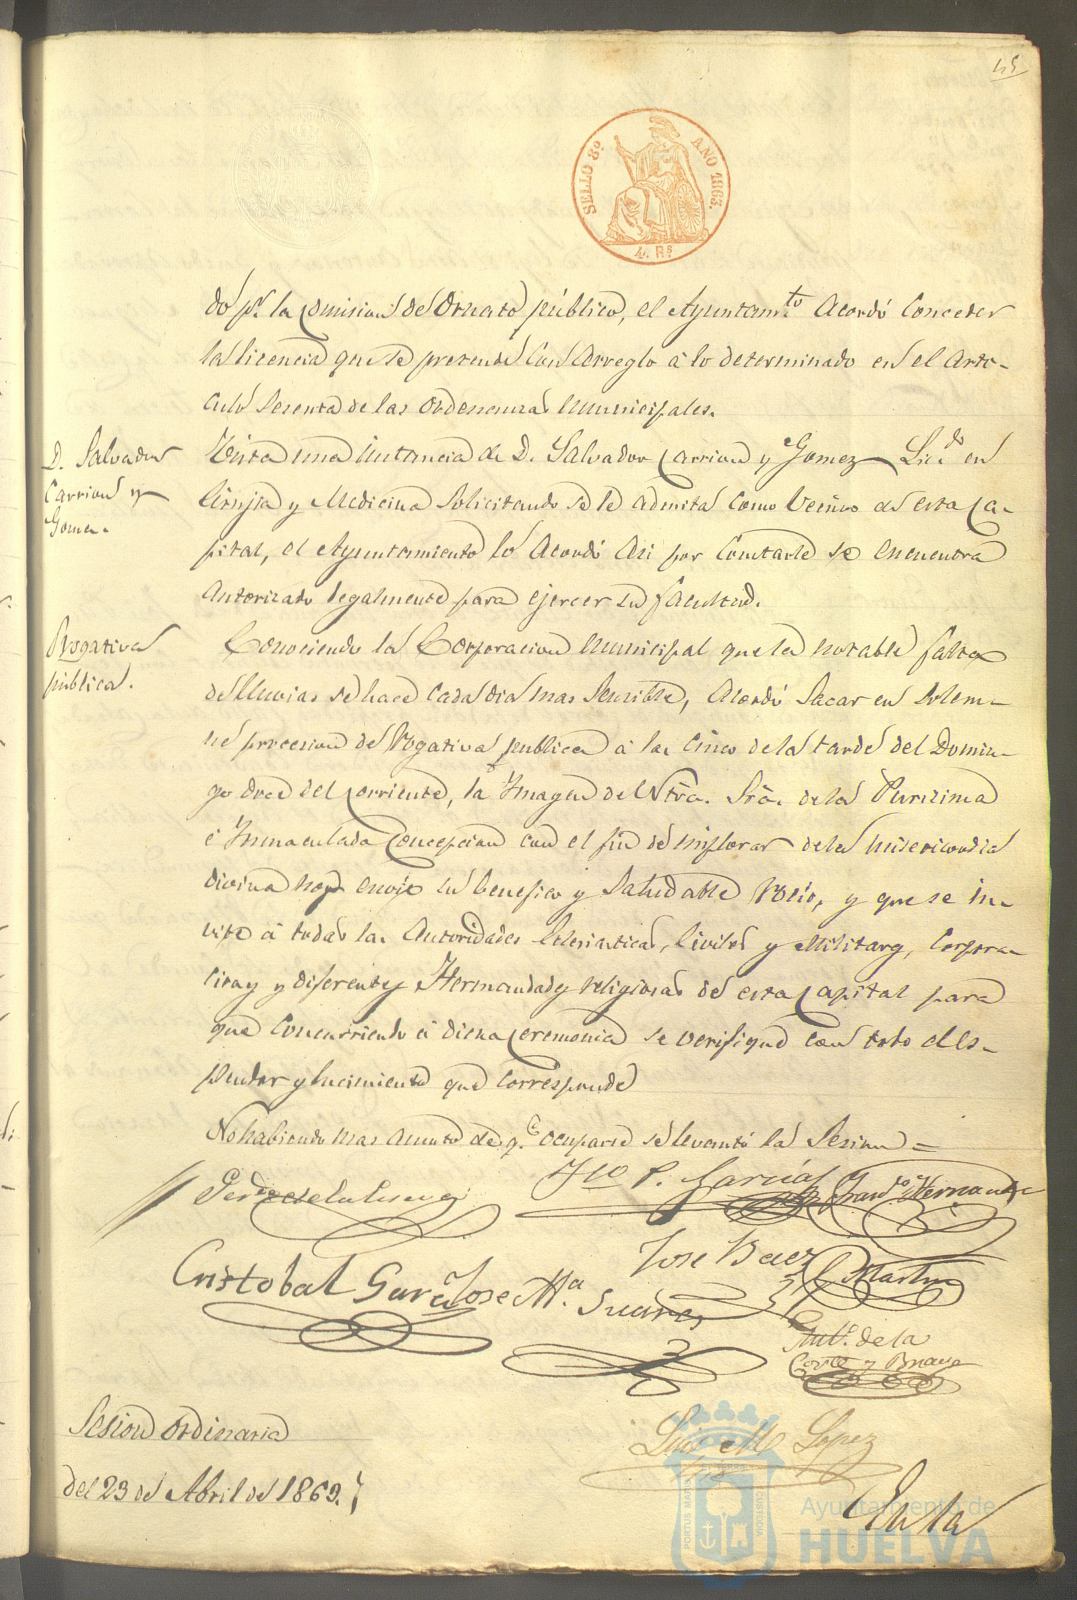 45
SELLO 8º AÑO 1863.
4 Rs
do pr. la Comision de Ornato público, el Ayuntamto. Acordó Conceder
la licencia que se pretende Con Arreglo á lo determinado en el Arti-
culo Sesenta de las Ordenanzas Municipales.
D. Salvador
Carrion y
Gomez.
Vista una instancia de D. Salvador Carrion y Gomez Licdo. en
Cirujia y Medicina Solicitando se le admita como Vecino de esta Ca-
pital, el Ayuntamiento lo Acordó Asi por Constarle se encuentra
Autorizado legalmente para ejercer su facultad.
Rogativa
pública.
Conociendo la Corporacion Municipal que la notable falta
de lluvias se hace Cada dia mas Sensible, Acordó Sacar en Solem-
ne procesion de Rogativa publica á las Cinco de la tarde del Domin-
go doce del Corriente, la Imagen de Ntra. Sra. de la Purisima
é Inmaculada Concepcion con el fin de implorar de la misericordia
divina nos envie su benefico y Saludable Rocio, y que se in-
vite á todas las Autoridades Eclesiasticas, Civiles y Militares, Corpora-
ciones y diferentes Hermandades religiosas de esta Capital para
que Concurriendo á dicha Ceremonia se verifique con todo el es-
plendor y lucimiento que Corresponde
No habiendo mas asunto de qe. ocuparse se levantó la Sesion =
P. Garcia
Franco. Hernandez
Cristobal Garcia
Jose Ma. Suarez
Jose Baez
Martin
Anto. de la
Corte y Bravo
Luis M Lopez
Sesion Ordinaria
del 23 de Abril de 1863.
En la
PORTUS MARIS
CUSTODIA
Ayuntamiento de
HUELVA